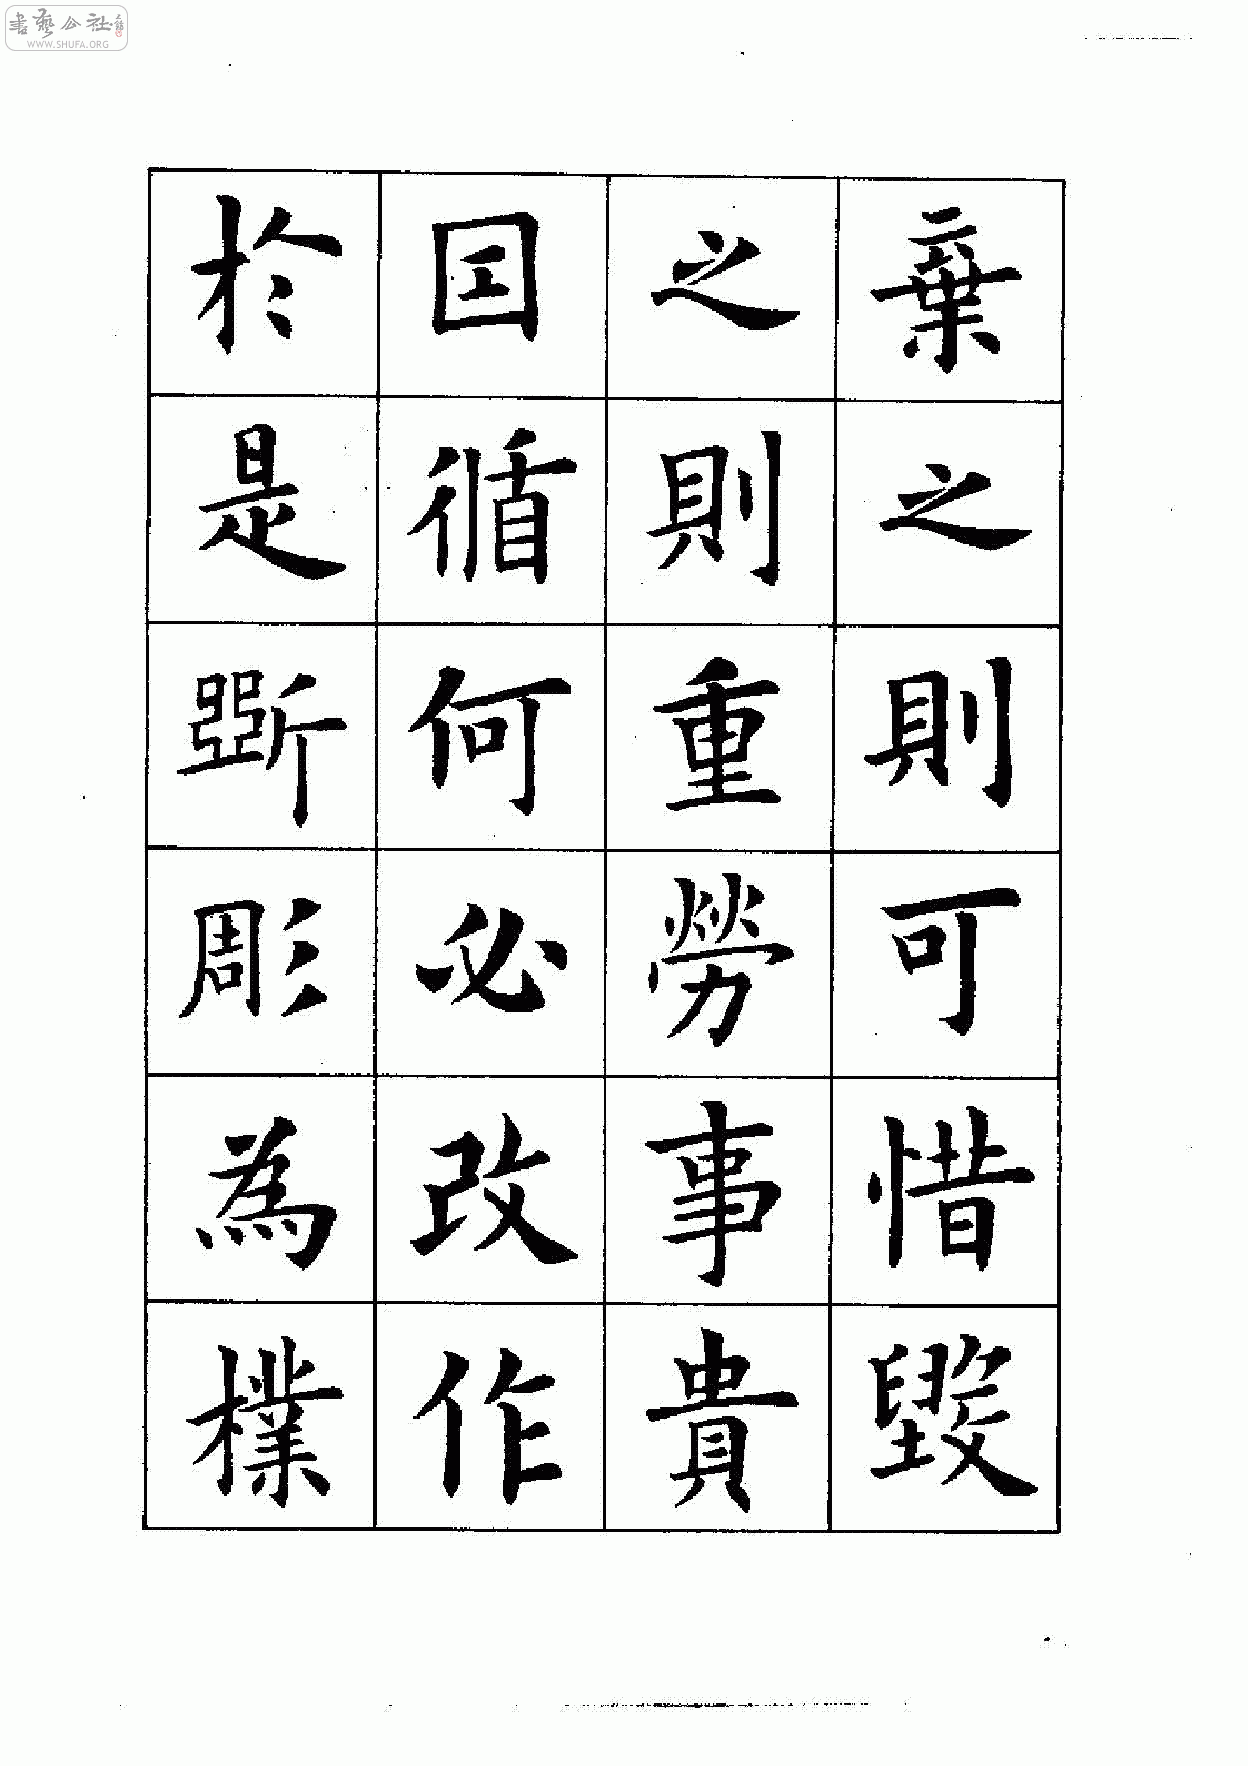 書藝公社
WWW.SHUFA.ORG
棄之則可惜毀
之則重勞事貴
因循何必改作
於是斲彫為樸